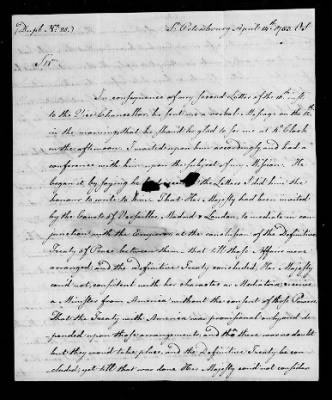 (Duplt. No. 28.) St. Petersbourg April 14th 1783. O.S
Sir
In consequence of my second Letter of the 10th inst.
to the Vice Chancellor, he sent me a verbal Message on the 12th
in the morning, that he should be glad to see me at 4 o'Clock
in the afternoon. I waited upon him accordingly and had a
conference with him upon the subject of my Mission. He
began it, by saying he had the Letters I did him the
honour to write to him. That Her Majesty had been invited
by the Courts of Versailles Madrid & London, to mediate in con-
junction with the Emperor, at the conclusion of the Definitive
Treaty of Peace between them that till those Affairs were
arranged, and the Definitive Treaty concluded, Her Majesty
cou'd not, consistent with her character as Mediatrix, receive
a Minister from America without the consent of those Powers.
That the Treaty with America was provisional only and de-
pended upon those arrangements, and tho' there was no doubt
but they wou'd take place, and the Definitive Treaty be con-
cluded, yet till that was done Her Majesty cou'd not consider